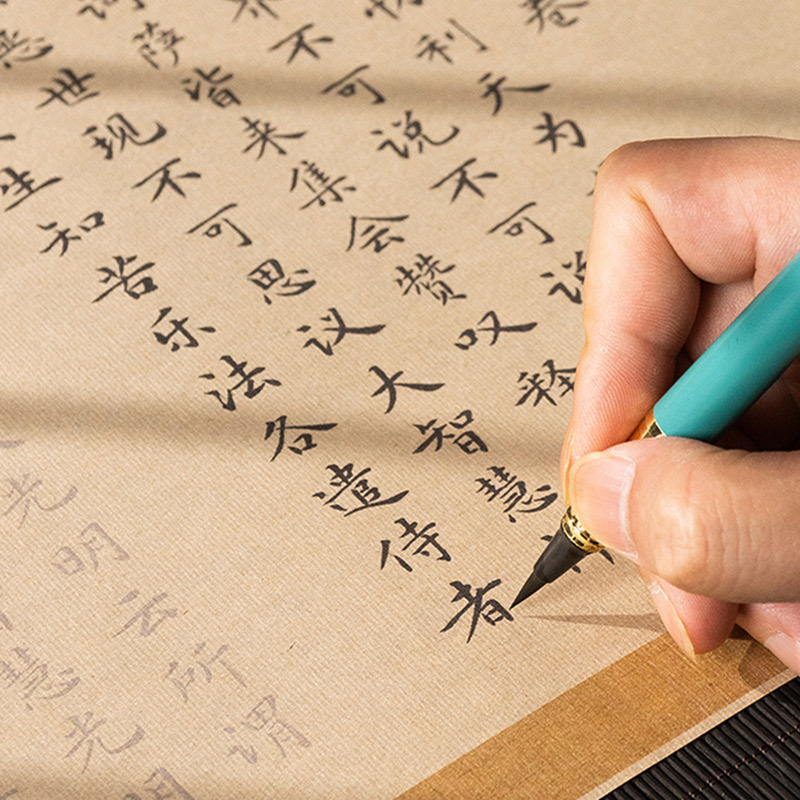 卷
利天为
不可说不可说
萨皆来集会赞叹释
恶世现不可思议大智慧
生知苦乐法各遣侍者
光明云所谓
慧光明